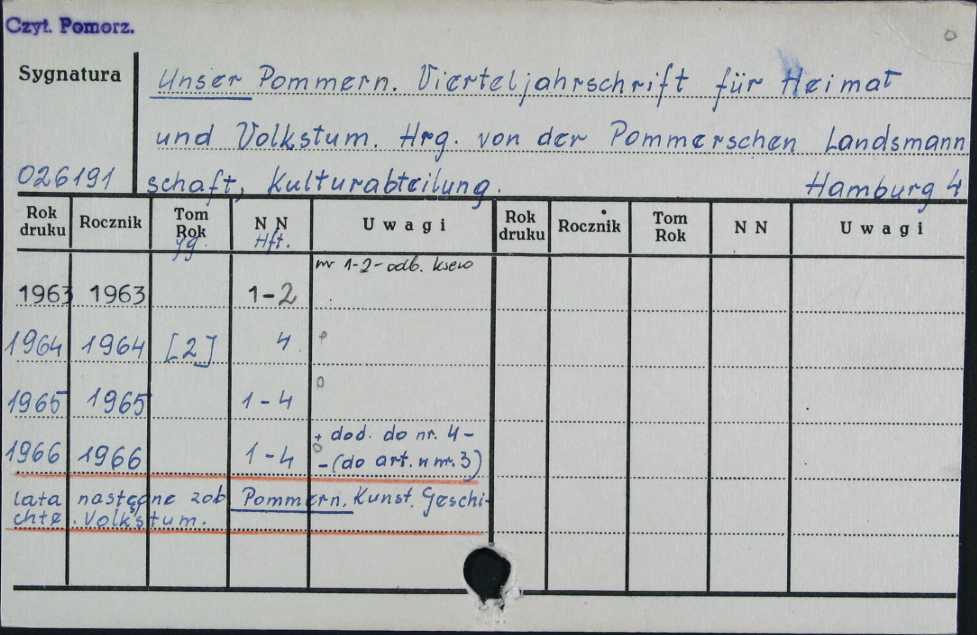 Czyt. Pomorz.
Sygnatura
Unser Pommern. Vierteljahrschrift für Heimat
und Volkstum. Hrg. von der Pommerschen Landsmann
026191 schaft, Kulturabteilung. Hamburg 4
Rok druku Rocznik Tom Rok NN Uwagi Rok druku Rocznik Tom Rok NN Uwagi
Jg. Hft.
nr 1-2-odb. ksero
1963 1963 1-2
1964 1964 [2] 4
1965 1965 1-4
+ dod. do nr. 4-
1966 1966 1-4 -(do art. w nr. 3)
lata następne zob. Pommern. Kunst. Geschi-
chte. Volkstum.